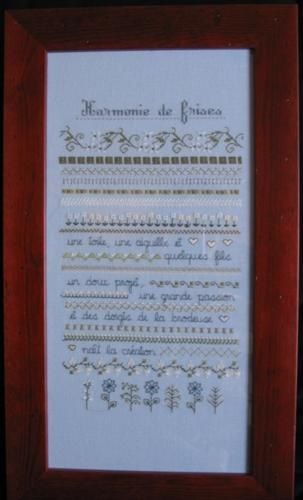 Harmonie de frises
une toile, une aiguille et
quelques fils
un doux projet,
une grande passion
et des doigts de la brodeuse
naît la création